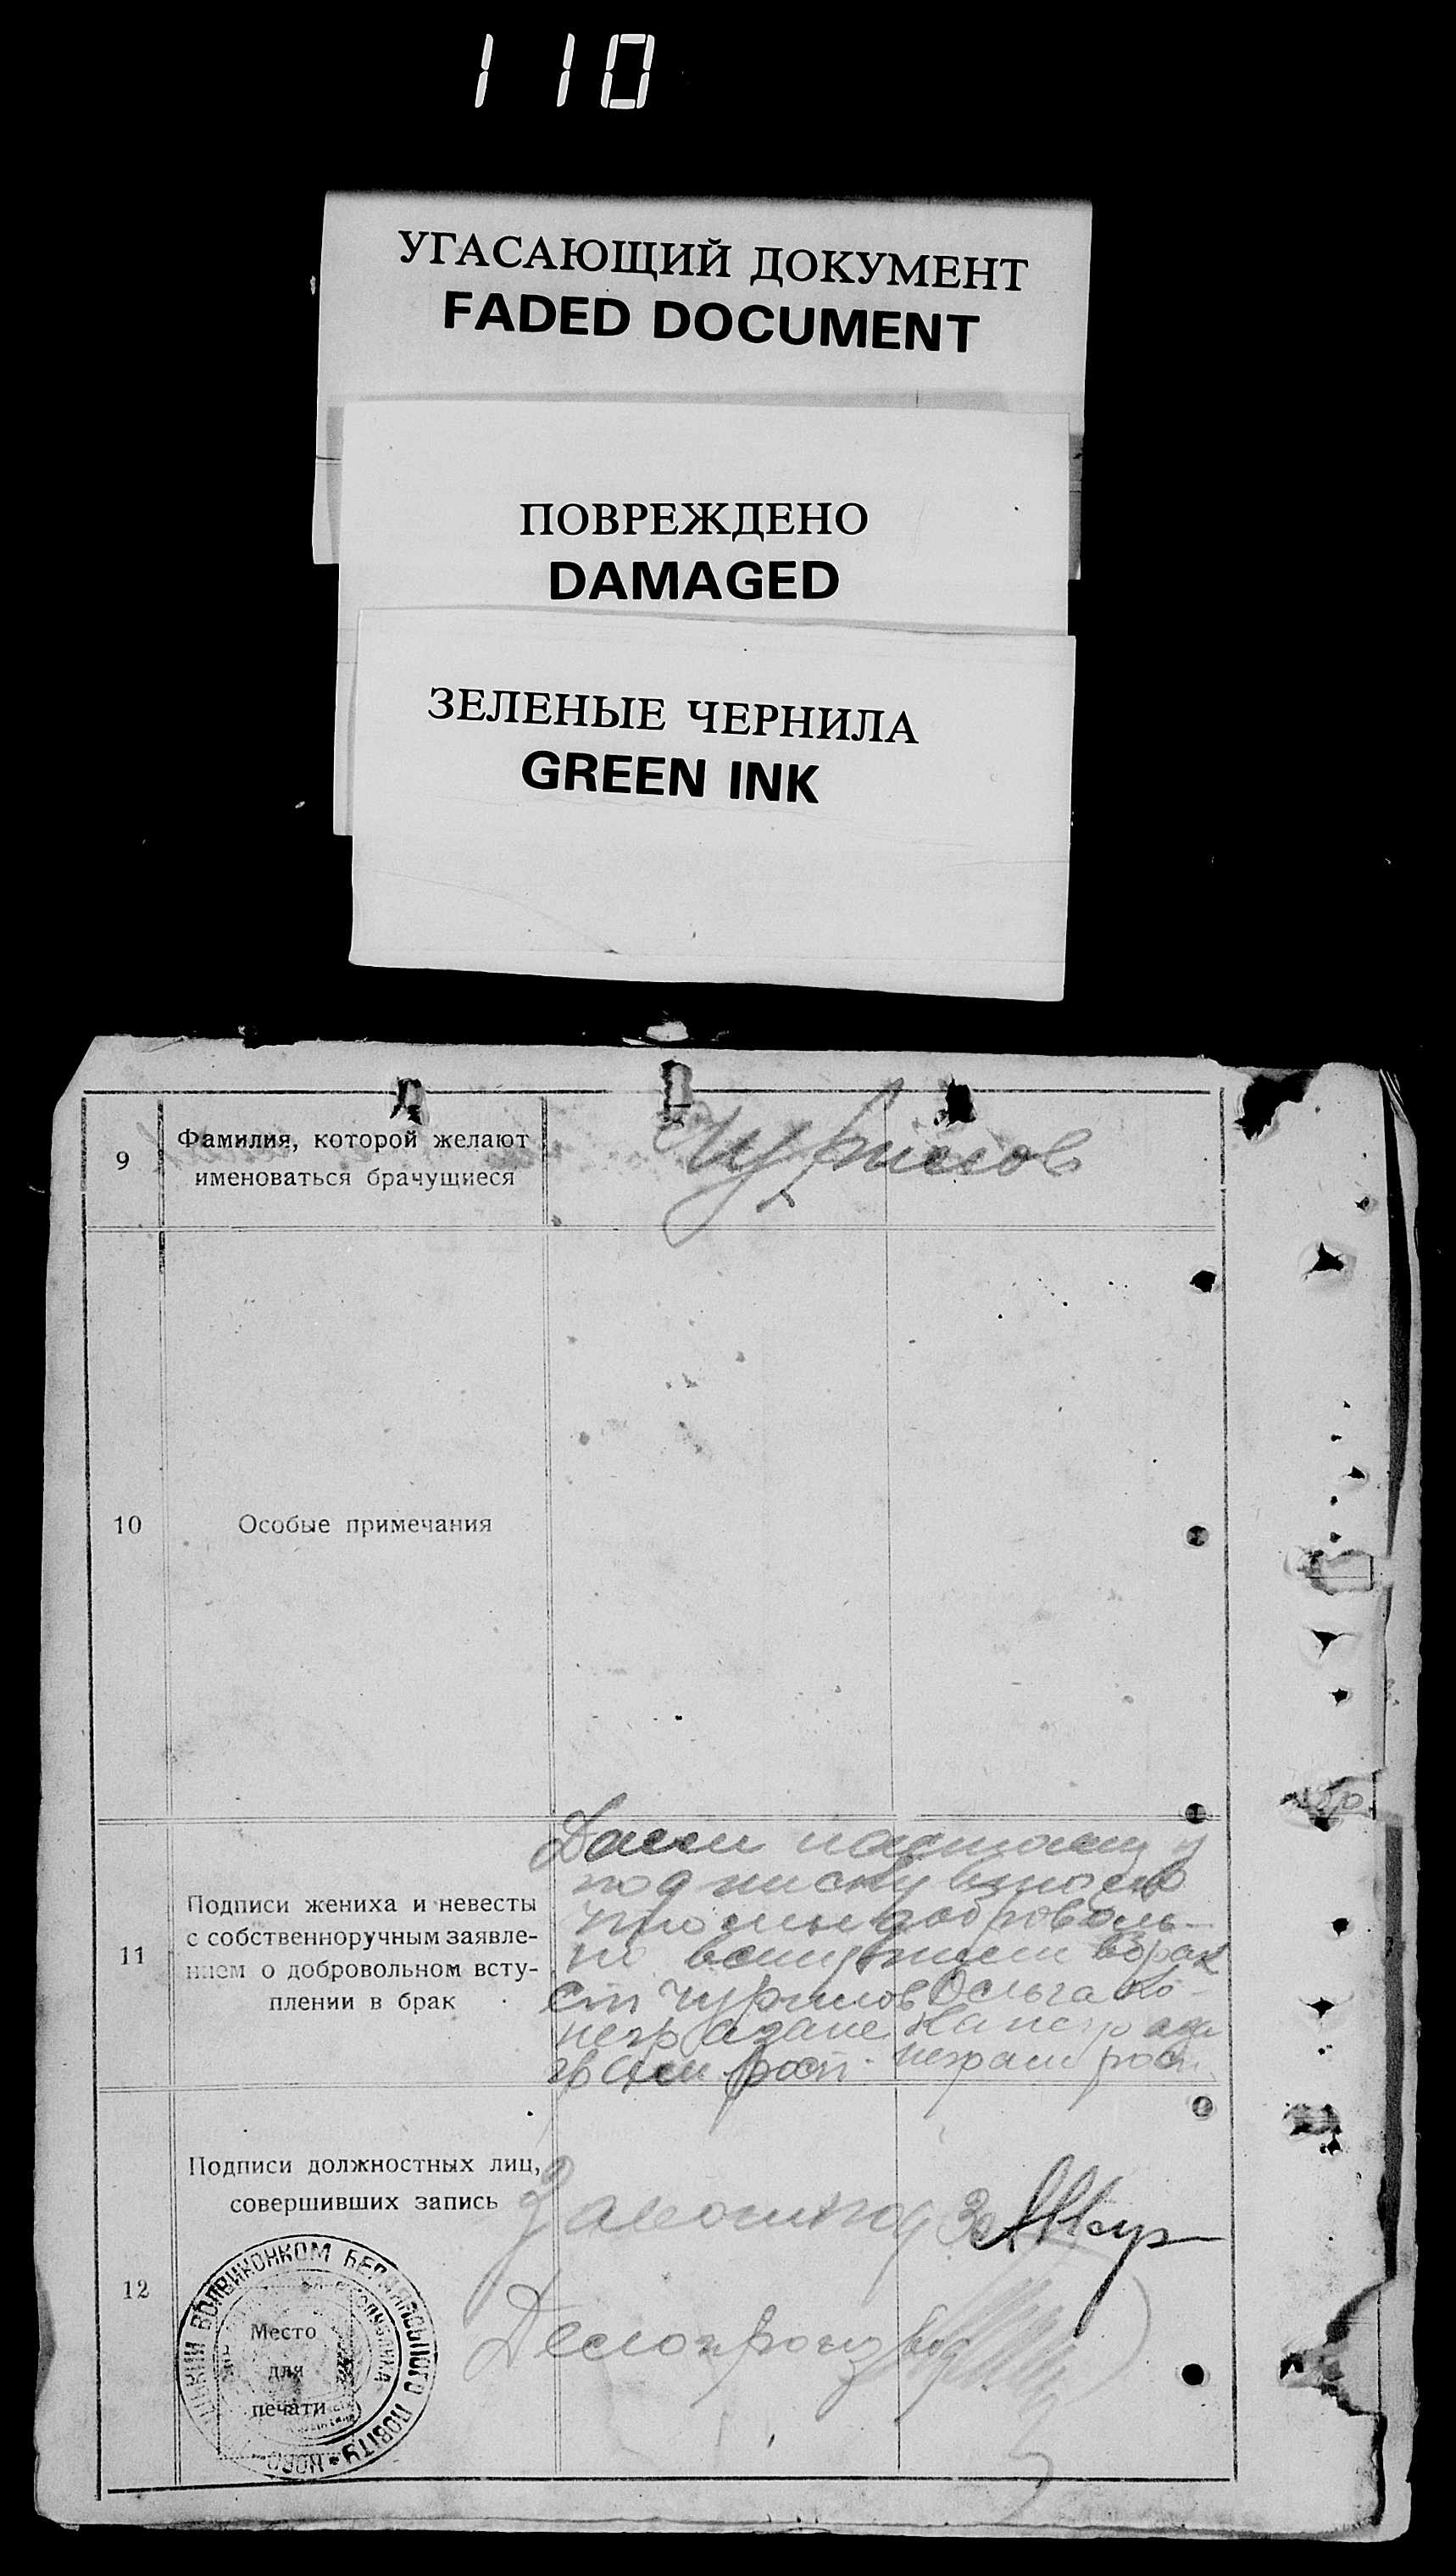 110
УГАСАЮЩИЙ ДОКУМЕНТ
FADED DOCUMENT
ПОВРЕЖДЕНО
DAMAGED
ЗЕЛЕНЫЕ ЧЕРНИЛА
GREEN INK
9
Фамилия, которой желают
именоваться брачущиеся
Чурилов
10
Особые примечания
11
Подписи жениха и невесты
с собственноручным заявле-
нием о добровольном всту-
плении в брак
Дали настоящую
подписку в том
что мы доброволь-
но вступаем в брак
Чурилов Ольга
росп.
12
Подписи должностных лиц,
совершивших запись
Делопроизвод
Место
для
печати
ВОЛВИКОНКОМ ПОВІТУ